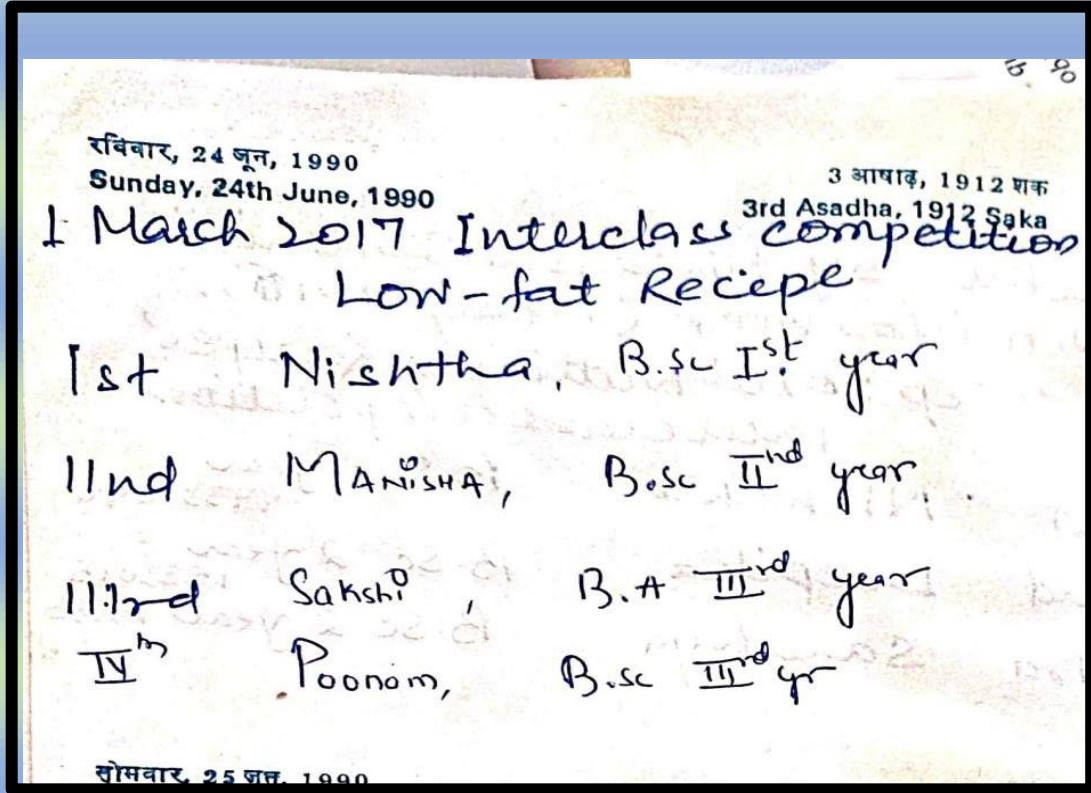 रविवार, 24 जून, 1990
Sunday, 24th June, 1990
3 आषाढ़, 1912 शक
3rd Asadha, 1912 Saka
1 March 2017 Interclass competition
Low-fat Recipe
Ist Nishtha, B.sc Ist year
IInd MANiSHA, B.sc IInd year
IIIrd Sakshi, B.A IIIrd year
IVth Poonam, B.sc IIIrd yr
सोमवार, 25 जून, 1990